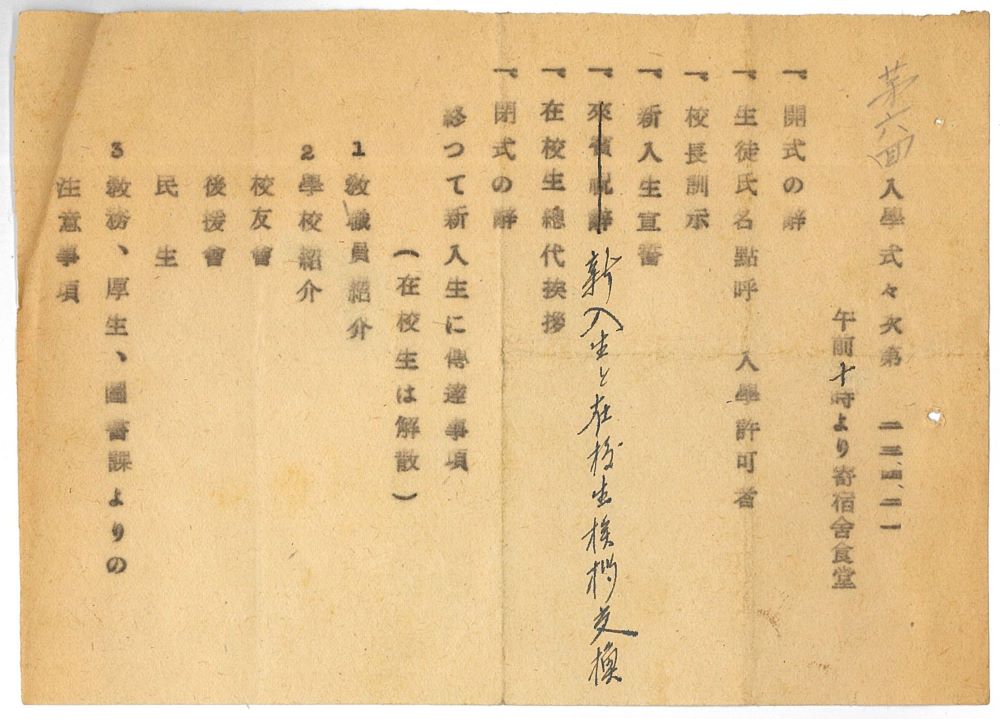 第六回
入學式々次第　二三、四、二一
午前十時より寄宿舍食堂
一、開式の辭
一、生徒氏名點呼　入學許可者
一、校長訓示
一、新入生宣誓
一、來賓祝辭　新入生と在校生挨拶交換
一、在校生總代挨拶
一、閉式の辭
終つて新入生に傳達事項
（在校生は解散）
1 敎職員紹介
2 學校紹介
校友會
後援會
民　生
3 敎務、厚生、圖書課よりの
注意事項